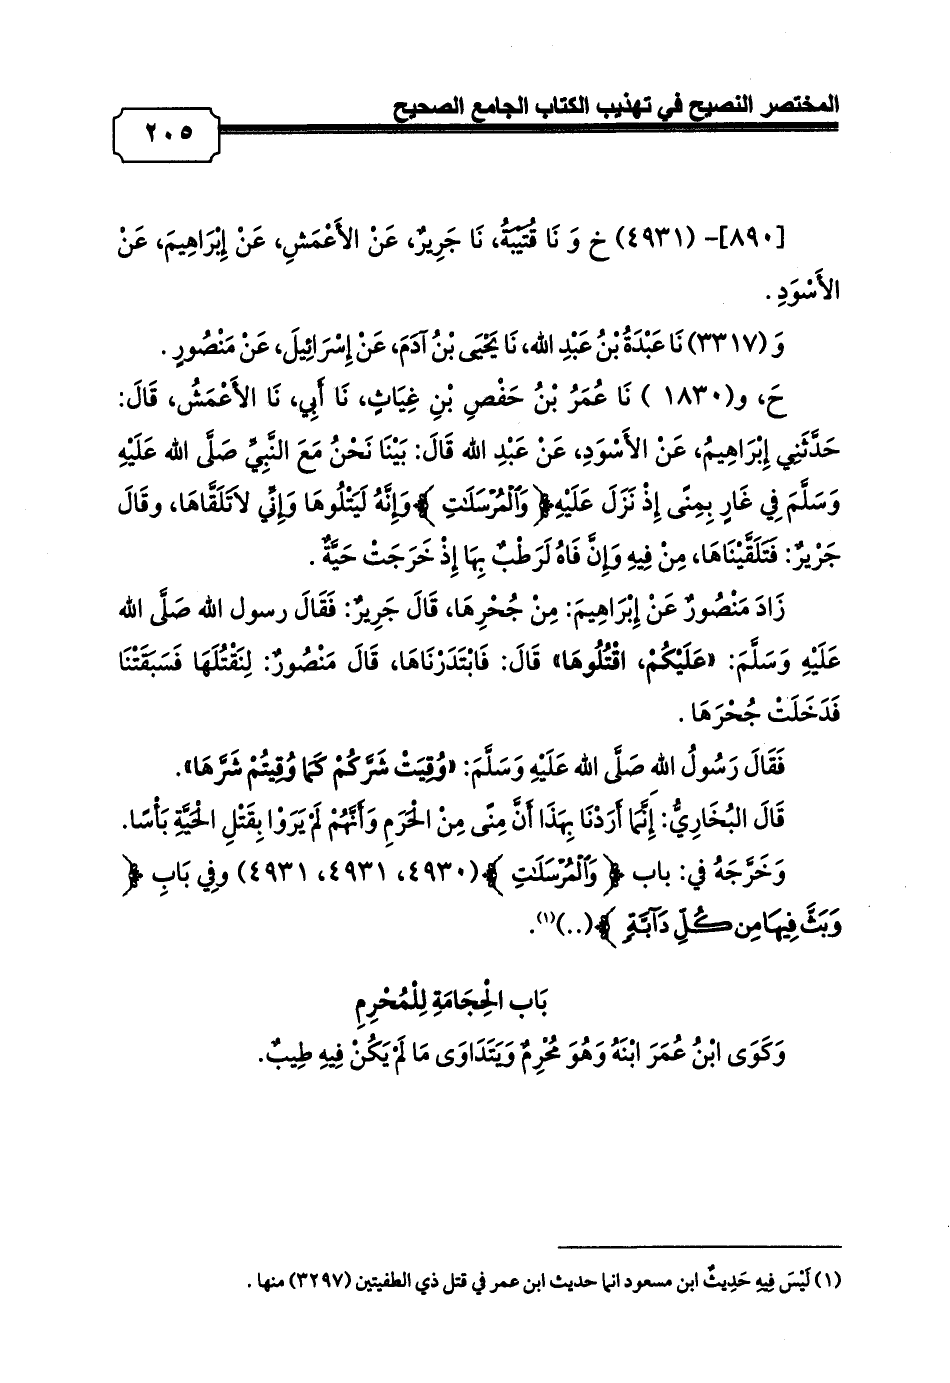 المختصر النصيح في تهذيب الكتاب الجامع الصحيح
٢٠٥
[٨٩٠]- (٤٩٣١) خ وَ نَا قُتَيْبَةُ، نَا جَرِيرٌ، عَنْ الأَعْمَشِ، عَنْ إِبْرَاهِيمَ، عَنْ
الأَسْوَدِ .
وَ (٣٣١٧) نَا عَبْدَةُ بْنُ عَبْدِ الله، نَا يَحْيَى بْنُ آدَمَ، عَنْ إِسْرَائِيلَ، عَنْ مَنْصُورٍ .
حَ، و(١٨٣٠ ) نَا عُمَرُ بْنُ حَفْصِ بْنِ غِيَاثٍ، نَا أَبِي، نَا الأَعْمَشُ، قَالَ:
حَدَّثَنِي إِبْرَاهِيمُ، عَنْ الأَسْوَدِ، عَنْ عَبْدِ الله قَالَ: بَيْنَا نَحْنُ مَعَ النَّبِيِّ صَلَّى الله عَلَيْهِ
وَسَلَّمَ فِي غَارٍ بِمِنًى إِذْ نَزَلَ عَلَيْهِ﴿ وَٱلْمُرْسَلَٰتِ ﴾وَإِنَّهُ لَيَتْلُوهَا وَإِنِّي لاَتَلَقَّاهَا، وقَالَ
جَرْيرٌ: فَتَلَقَّيْنَاهَا، مِنْ فِيهِ وَإِنَّ فَاهُ لَرَطْبٌ بِهَا إِذْ خَرَجَتْ حَيَّةٌ .
زَادَ مَنْصُورٌ عَنْ إِبْرَاهِيمَ: مِنْ جُحْرِهَا، قَالَ جَرِيرٌ: فَقَالَ رسول الله صَلَّى الله
عَلَيْهِ وَسَلَّمَ: «عَلَيْكُمْ، اقْتُلُوهَا» قَالَ: فَابْتَدَرْنَاهَا، قَالَ مَنْصُورٌ: لِنَقْتُلَهَا فَسَبَقَتْنَا
فَدَخَلَتْ جُحْرَهَا .
فَقَالَ رَسُولُ الله صَلَّى الله عَلَيْهِ وَسَلَّمَ: «وُقِيَتْ شَرَّكُمْ كَمَا وُقِيتُمْ شَرَّهَا».
قَالَ البُخَارِيُّ: إِنَّمَا أَرَدْنَا بِهَذَا أَنَّ مِنًى مِنْ الْحَرَمِ وَأَنَّهُمْ لَمْ يَرَوْا بِقَتْلِ الْحَيَّةِ بَأْسَا.
وَخَرَّجَهُ فِي: باب ﴿ وَٱلْمُرْسَلَٰتِ ﴾(٤٩٣٠، ٤٩٣١، ٤٩٣١) وفِي بَابِ ﴿
وَبَثَّ فِيهَا مِن كُلِّ دَآبَّةٍ ﴾(..)(١).
بَاب الْحِجَامَةِ لِلْمُحْرِمِ
وَكَوَى ابْنُ عُمَرَ ابْنَهُ وَهُوَ مُحْرِمٌ وَيَتَدَاوَى مَا لَمْ يَكُنْ فِيهِ طِيبٌ.
(١) لَيْسَ فِيهِ حَدِيثُ ابن مسعود انما حديث ابن عمر في قتل ذي الطفيتين (٣٢٩٧) منها .